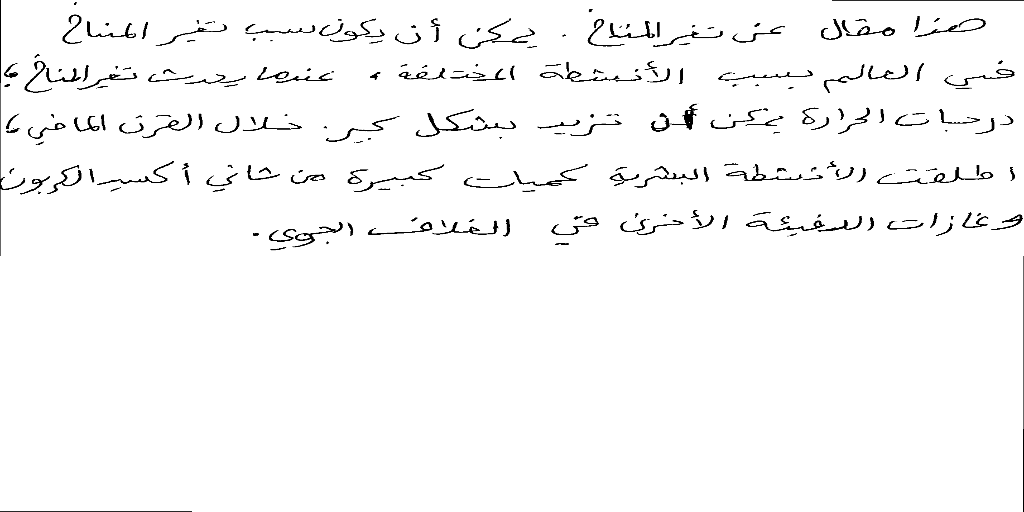 هذا مقال عن تغير المناخ. يمكن أن يكون سبب تغير المناخ
في العالم بسبب الأنشطة المختلفة، عندما يحدث تغير المناخ،
درجات الحرارة يمكن أن تزيد بشكل كبير. خلال القرن الماضي،
اطلقت الأنشطة البشرية كميات كبيرة من ثاني أكسيد الكربون
وغازات الدفيئة الأخرى في الغلاف الجوي.